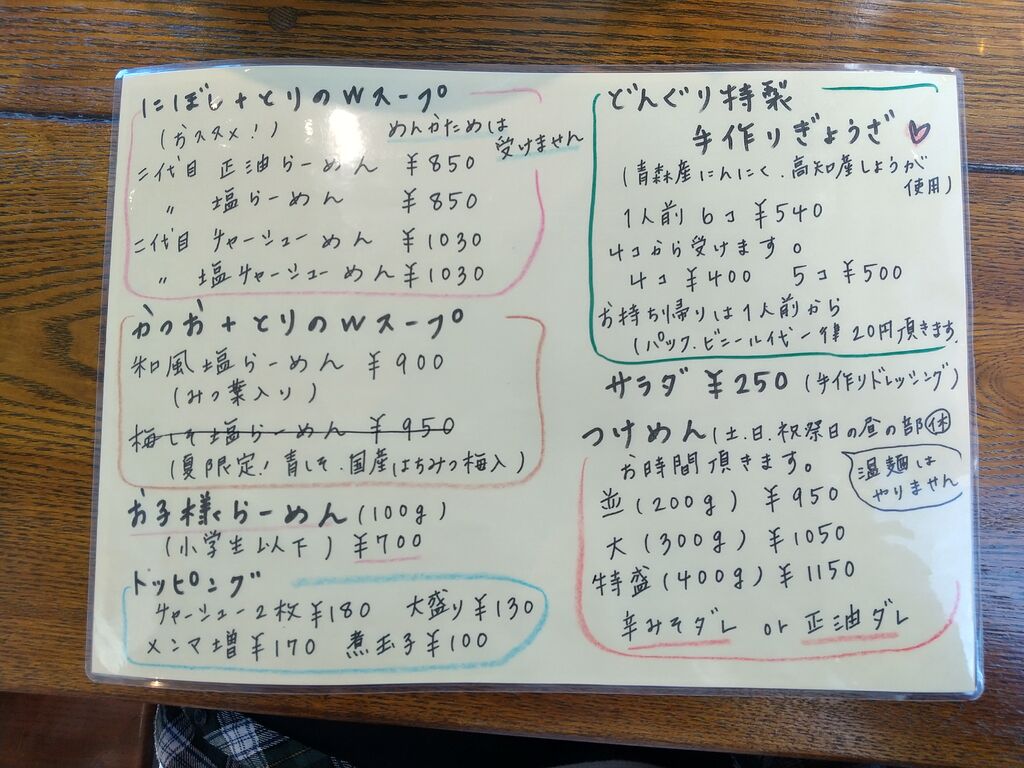 にぼし+とりのWスープ
(おススメ!)
めんかためは
受けません
二代目 正油らーめん ¥850
〃 塩らーめん ¥850
二代目 チャーシューめん ¥1030
〃 塩チャーシューめん ¥1030
かつお+とりのWスープ
和風塩らーめん ¥900
(みつ葉入り)
梅しそ塩らーめん ¥950
(夏限定!青しそ、国産はちみつ梅入)
お子様らーめん(100g)
(小学生以下) ¥700
トッピング
チャーシュー2枚¥180 大盛り¥130
メンマ増¥170 煮玉子¥100
どんぐり特製
手作りぎょうざ♡
(青森産にんにく、高知産しょうが
使用)
1人前 6コ ¥540
4コから受けます。
4コ ¥400 5コ ¥500
お持ち帰りは1人前から
(パック、ビニール代一律20円頂きます。
サラダ ¥250 (手作りドレッシング)
つけめん(土、日、祝祭日の昼の部㊡
お時間頂きます。
温麺は
やりません
並(200g) ¥950
大(300g) ¥1050
特盛(400g) ¥1150
辛みそダレ or 正油ダレ